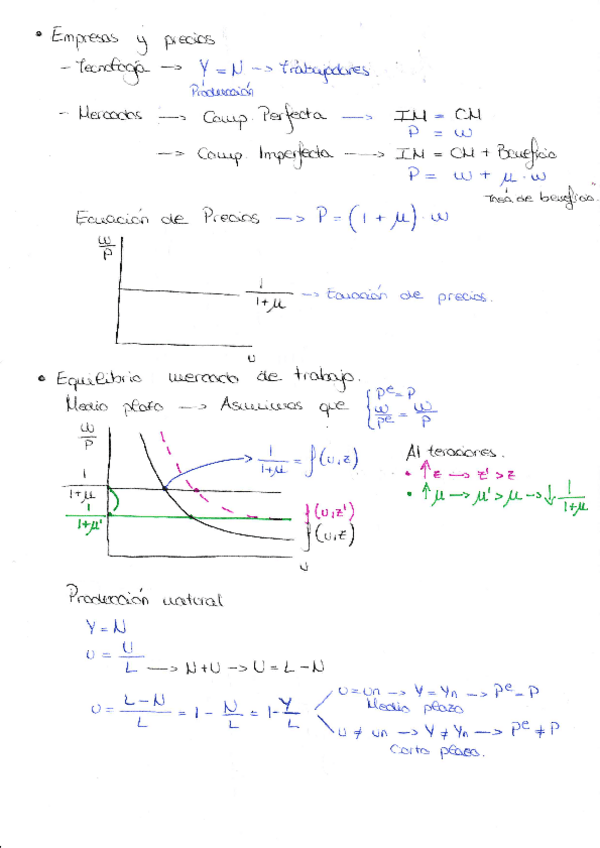 • Empresas y precios
- Tecnología → Y = N → trabajadores.
Producción
- Mercados → Comp. Perfecta → IM = CM
P = w
→ Comp. Imperfecta → IM = CM + Beneficio
P = w + μ · w
tasa de beneficio.
Ecuación de Precios → P = (1 + μ) · w
w/P
1/1+μ → Ecuación de precios.
u
• Equilibrio mercado de trabajo.
Medio plazo → Asumimos que { Pe = P
w/Pe = w/P
w/P
1/1+μ = f(u,z)
Alteraciones.
• ↑z → z' > z
• ↑μ → μ' > μ → ↓ 1/1+μ
1/1+μ
1/1+μ'
f(u,z')
f(u,z)
u
Producción natural
Y = N
u = U/L → N+U → U = L - N
u = L-N/L = 1 - N/L = 1 - Y/L
u = un → Y = Yn → Pe = P
Medio plazo
u ≠ un → Y ≠ Yn → Pe ≠ P
Corto plazo.